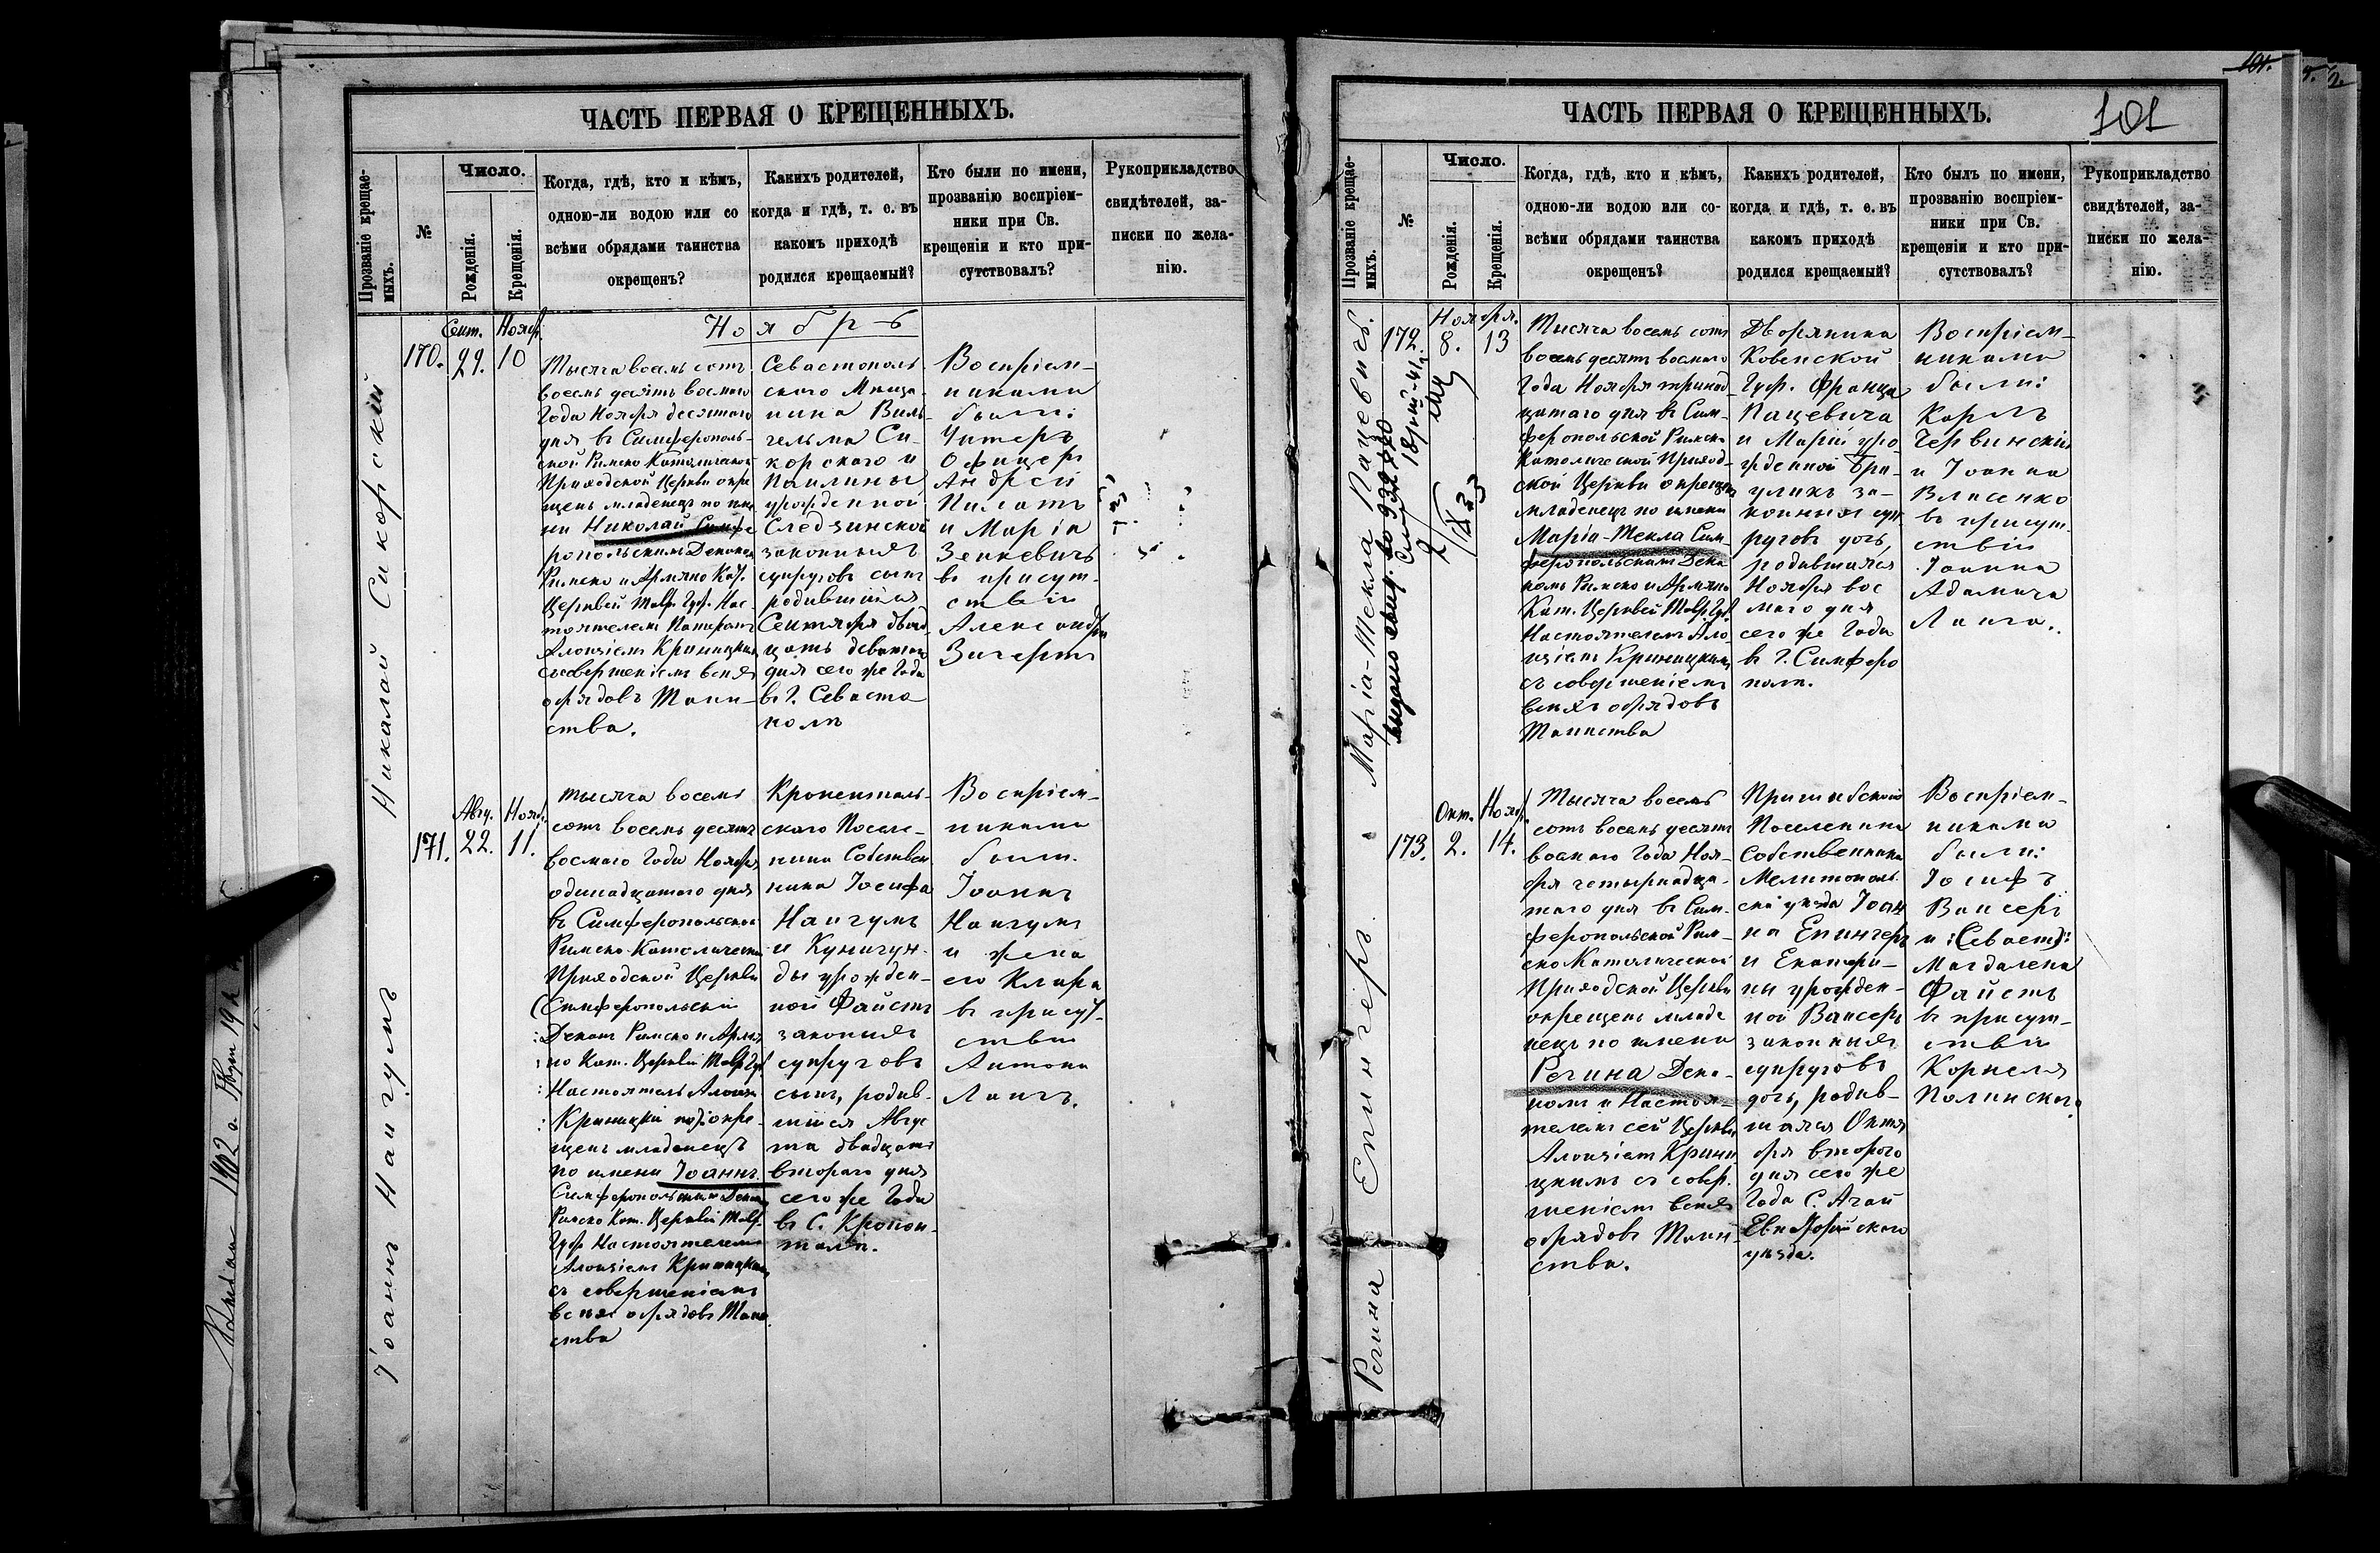 ЧАСТЬ ПЕРВАЯ О КРЕЩЕННЫХЪ.
Прозваніе крещае-
мыхъ.
№
Число.
Рожденія.
Крещенія.
Когда, гдѣ, кто и кѣмъ,
одною-ли водою или со
всѣми обрядами таинства
окрещенъ?
Какихъ родителей,
когда и гдѣ, т. е. въ
какомъ приходѣ
родился крещаемый?
Кто были по имени,
прозванію воспріем-
ники при Св.
крещеніи и кто при-
сутствовалъ?
Рукоприкладство
свидѣтелей, за-
писки по жела-
нію.
Ноябрь
Николай Сикорскій
170.
Сент.
29.
Нояб.
10
Тысяча восемь сотъ
восемь десятъ восмаго
Года Ноября десятаго
дня въ Симферополь-
ской Римско Католической
Приходской Церкви окре
щенъ младенецъ по име
ни Николай Симфе
ропольскимъ Деканомъ
Римско и Армяно Кат.
Церквей Тавр. Губ. Нас-
тоятелемъ
Алоизіемъ Криницкимъ
съ совершеніемъ всѣхъ
обрядовъ Таин-
ства.
Севастополь
скаго Мѣща-
нина Виль-
гельма Си-
корскаго и
Паулины
урожденной
Следзинской
законныхъ
супруговъ сынъ
родившійся
Сентября двад-
цать девятаго
дня сего же Года
въ Г. Севасто
полѣ
Воспріем-
никами
были:
Унтеръ
Офицеръ
Андрей
Пилатъ
и Марія
Зенкевичъ
въ присут-
ствіи
Александра
Зигертъ
Іоаннъ Нангумъ
171.
Авгу.
22.
Нояб.
11.
Тысяча восемь
сотъ восемь десятъ
восмаго Года Ноября
одинадцатаго дня
въ Симферопольской
Римско-Католической
Приходской Церкви
(Симферопольскій
Деканъ Римско и Армя
но Кат. Церквей Тавр. Губ
Настоятель Алоизій
Криницкій :) окре-
щенъ младенецъ
по имени Іоаннъ
Симферопольскимъ Деканомъ
Римско Кат. Церквей Тавр.
Губ. Настоятелемъ
Алоизіемъ Криницкимъ
съ совершеніемъ
всѣхъ обрядовъ Таин
ства
Кроненталь-
скаго Поселя-
нина Собствен
ника Іосифа
Нангумъ
и Кунигун-
ды урожден-
ной Файстъ
законныхъ
супруговъ
сынъ, родив-
шійся Авгус
та двадцать
втораго дня
сего же Года
въ С. Кронен-
талѣ.
Воспріем-
никами
были.
Іоаннъ
Нангумъ
и жена
его Клара
въ присут-
ствіи
Антона
Лангъ.
ЧАСТЬ ПЕРВАЯ О КРЕЩЕННЫХЪ.
101
Прозваніе крещае-
мыхъ.
№
Число.
Рожденія.
Крещенія.
Когда, гдѣ, кто и кѣмъ,
одною-ли водою или со-
всѣми обрядами таинства
окрещенъ?
Какихъ родителей,
когда и гдѣ, т. е. въ
какомъ приходѣ
родился крещаемый?
Кто былъ по имени,
прозванію воспріем-
ники при Св.
крещеніи и кто при-
сутствовалъ?
Рукоприкладство
свидѣтелей, за-
писки по жела-
нію.
Марія-Текла Пацевичъ.
172
Ноября.
8.
13
Тысяча восемь сотъ
восемь десятъ восмаго
Года Ноября тринад
цатаго дня въ Сим-
феропольской Римско
Католической Приход-
ской Церкви окрещенъ
младенецъ по имени
Марія-Текла Сим-
феропольскимъ Дека
номъ Римско и Армяно
Кат. Церквей Тавр. Губ.
Настоятелемъ Ало-
изіемъ Криницкимъ
съ совершеніемъ
всѣхъ обрядовъ
Таинства
Дворянина
Ковенской
Губ. Франца
Пацевича
и Маріи уро-
жденной
законныхъ суп
руговъ дочь,
родившаяся
Ноября вос
маго дня
сего же Года
въ Г. Симферо
полѣ.
Воспріем-
никами
были:
Карлъ
Червинскій
и Іоанна
Власенко
въ присут-
ствіи
Іоанна
Адамича
Ланга.
Регина Епингеръ
173.
Окт.
2.
Нояб.
14.
Тысяча восемь
сотъ восемь десятъ
восмаго Года Ноя-
бря четырнадца-
таго дня въ Сим-
феропольской Рим-
ско Католической
Приходской Церкви
окрещенъ младе
нецъ по имени
Регина Дека-
номъ и Настоя-
телемъ сей Церкви
Алоизіемъ Крини
цкимъ съ совер-
шеніемъ всѣхъ
обрядовъ Таин-
ства.
Пришибскаго
Поселенина
Собственника
Мелитополь-
ска уѣзда Іоан
на Епингеръ
и Екатери-
ны урожден-
ной Вансеръ
законныхъ
супруговъ
дочь, родив-
шаяся Октя
бря второго
дня сего же
Года С. Агай
Евпаторійскаго
уѣзда.
Воспріем-
никами
были:
Іосифъ
Вансеръ
Магдалена
Файстъ
въ присут-
ствіи
Корнеля
Полинскаго